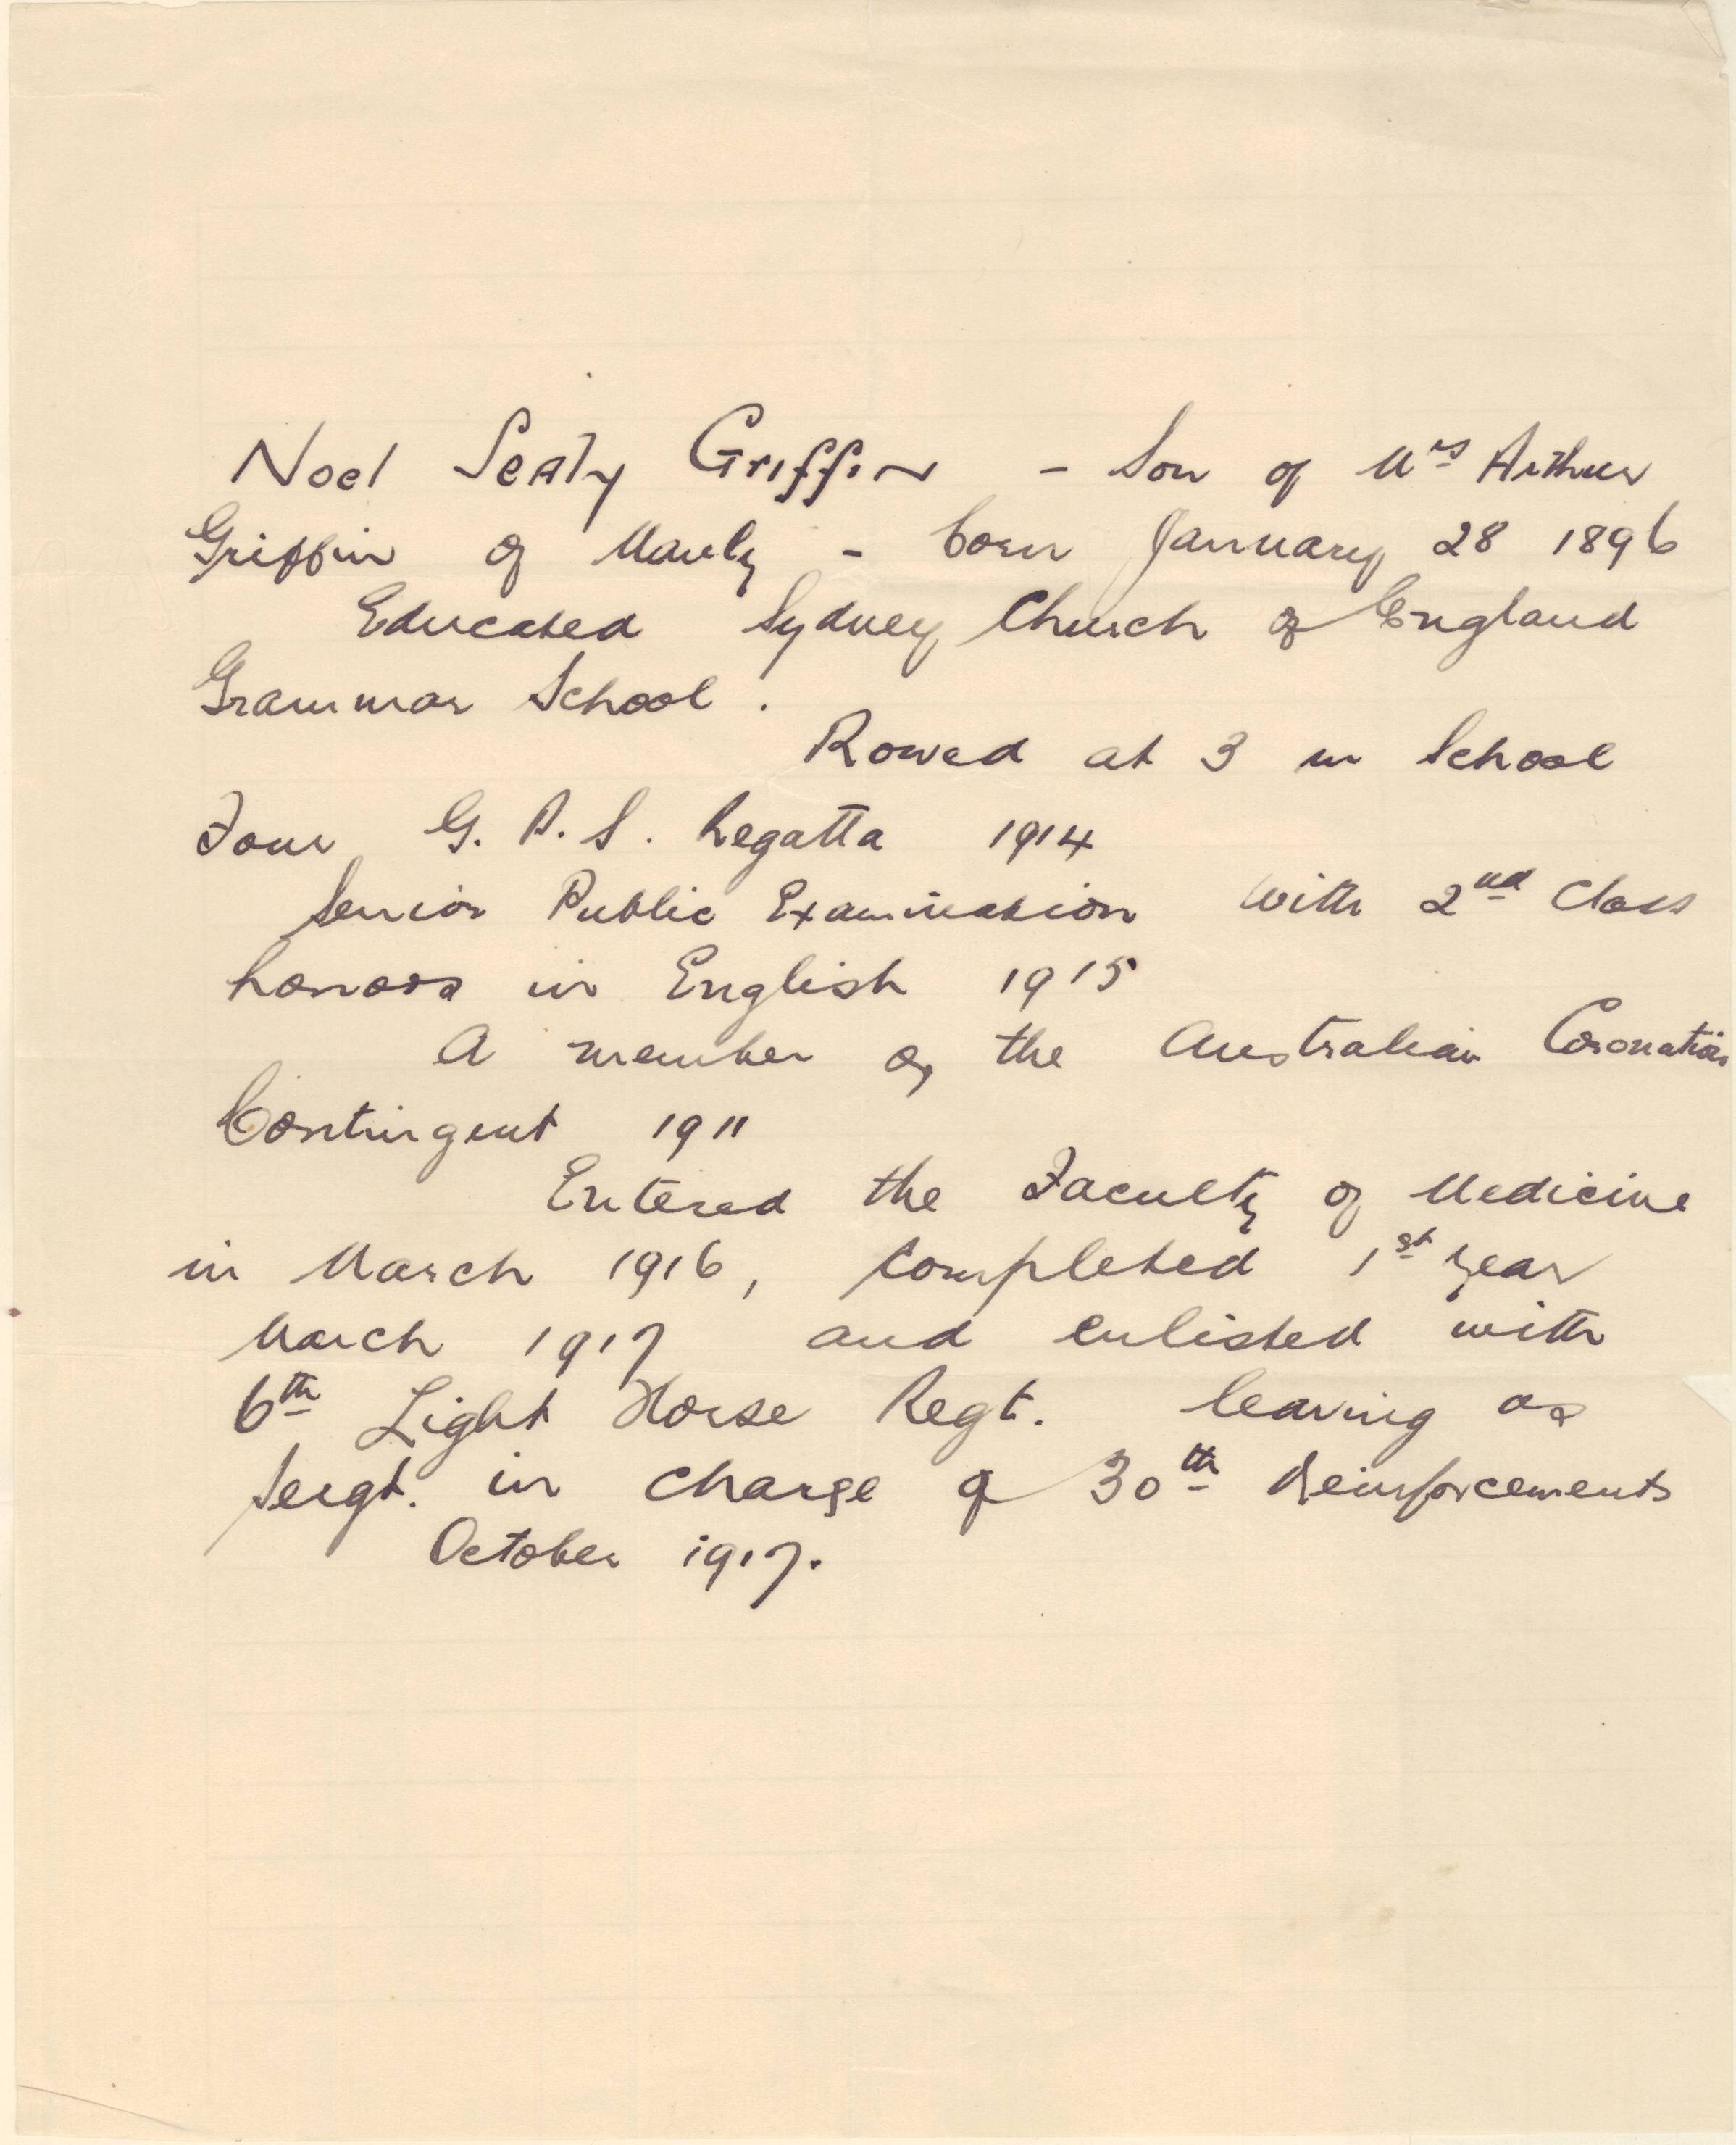 Noel Sealy Griffin - Son of Mrs Arthur
Griffin of Manly - born January 28 1896
Educated Sydney Church of England
Grammar School.
Rowed at 3 in School
Four G. P. S. Regatta 1914
Senior Public Examination with 2nd Class
honors in English 1915
A member of the Australian Coronation
Contingent 1911
Entered the Faculty of Medicine
in March 1916, completed 1st year
March 1917 and enlisted with
6th Light Horse Regt. leaving as
Sergt. in charge of 30th Reinforcements
October 1917.